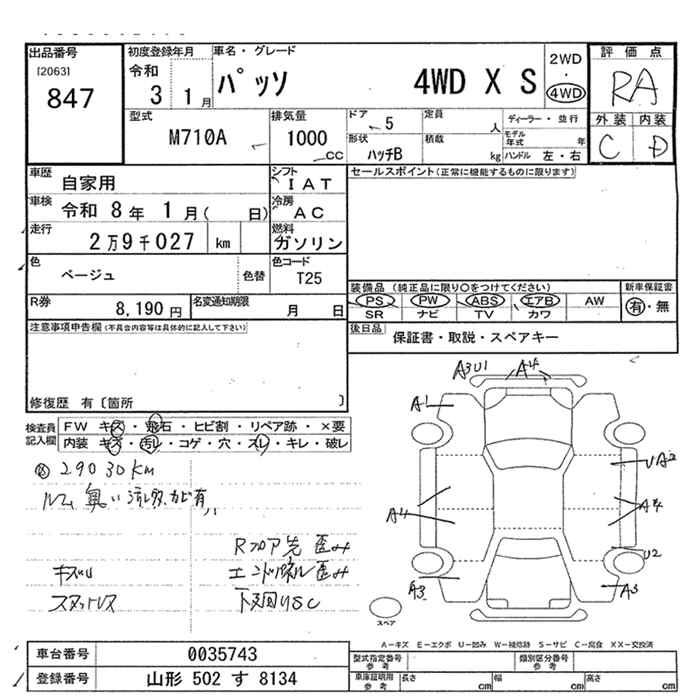 出品番号
[2063]
847
初度登録年月
令和
3 1月
車名・グレード
パッソ 4WD X S
2WD
・
4WD
評価点
RA
外装 内装
C D
型式
M710A
排気量
1000
CC
ドア
5
形状
ハッチB
定員
人
積載
kg
ディーラー・並行
モデル年式 年
ハンドル 左・右
車歴
自家用
シフト
IAT
車検
令和 8年 1月( 日)
冷房
AC
走行
2万9千027 km
燃料
ガソリン
色
ベージュ
色替
色コード
T25
R券
8,190円
名変通知期限
月 日
セールスポイント(正常に機能するものに限ります)
装備品(純正品に限り○をつけてください)
PS PW ABS エアB AW
SR ナビ TV カワ
新車保証書
有・無
後日品
保証書・取説・スペアキー
注意事項申告欄(不具合内容等は具体的に記入して下さい)
修復歴 有〔箇所 〕
検査員記入欄
FW キズ・飛石・ヒビ割・リペア跡・×要
内装 キズ・汚レ・コゲ・穴・スレ・キレ・破レ
29030km
ルーム臭い シミ カビ有
Rフロア先歪み
エンドパネル歪み
下回りUSC
キズU
スタットレス
A3U1
A4
A1
UA2
A4
A4
U2
A3
A3
スペア
A-キズ E-エクボ U-凹み W-補修跡 S-サビ C-腐食 XX-交換済
車台番号
0035743
登録番号
山形 502 す 8134
型式指定番号
参考
類別区分番号
参考
車庫証明用
参考
長さ cm
幅 cm
高さ cm